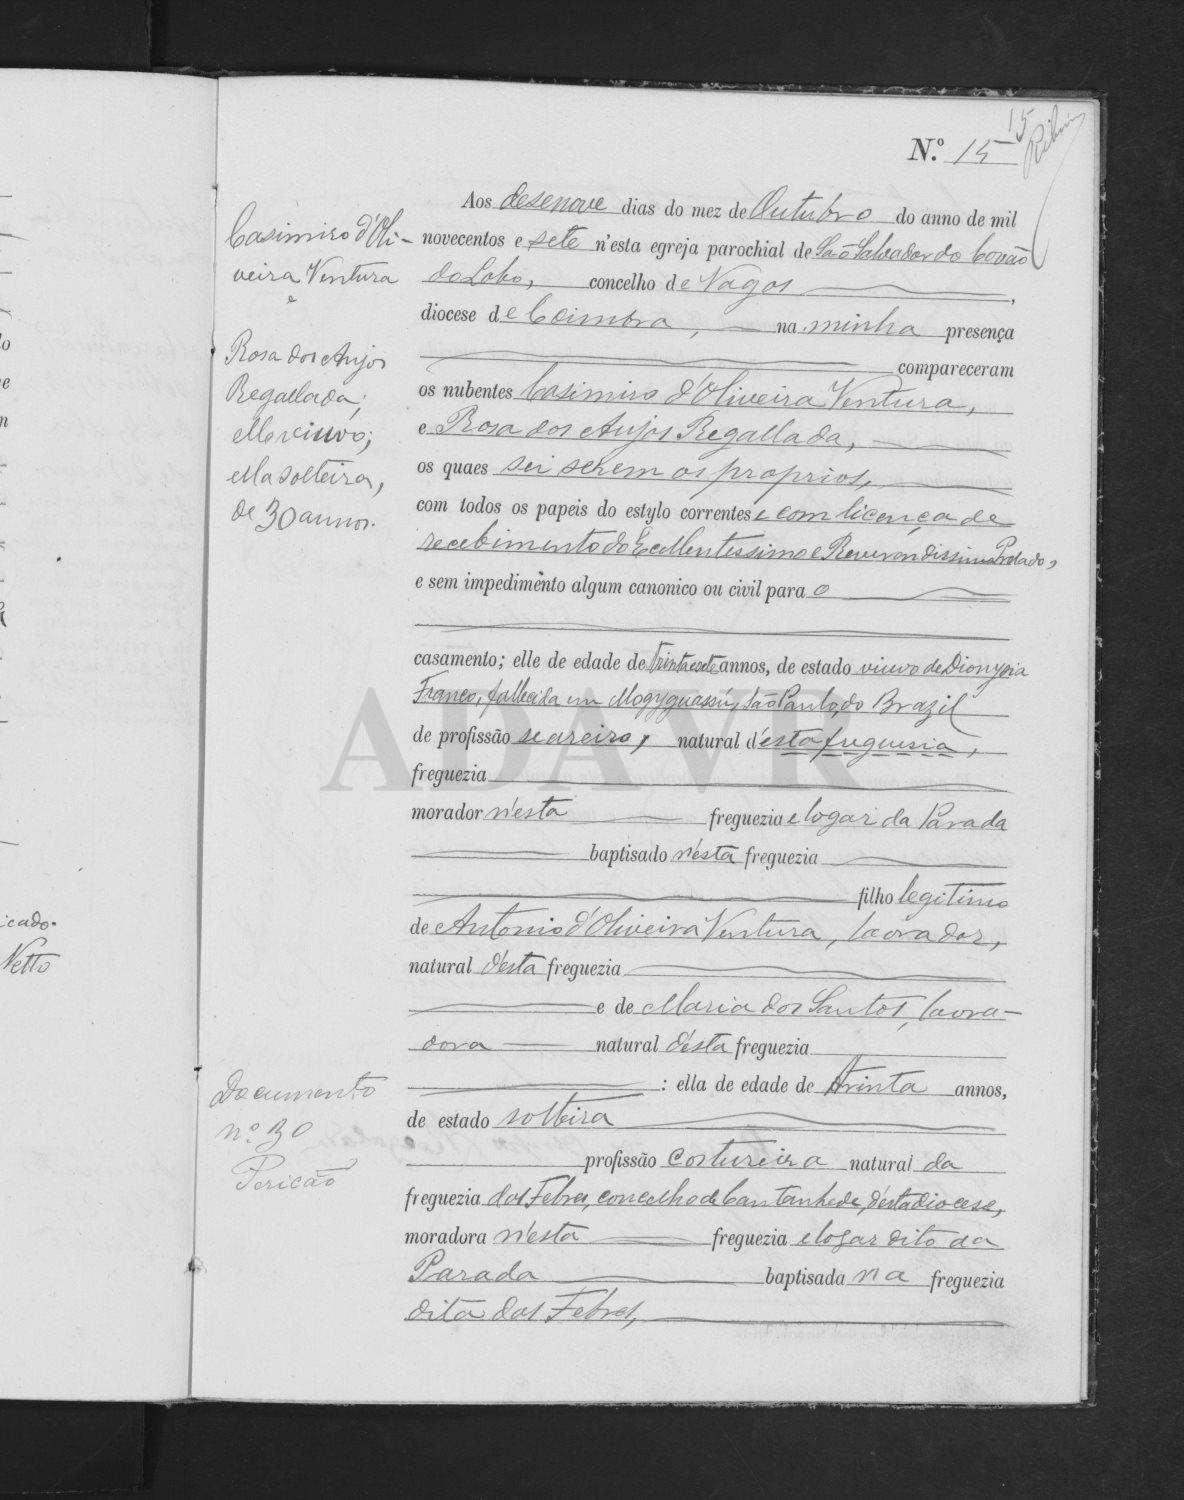 15
Nº 15
Casimiro d'Oli-
veira Ventura
e
Rosa dos Anjos
Regallada;
elle viuvo;
ella solteira,
de 30 annos.
Aos desenove dias do mez de Outubro do anno de mil
novecentos e sete n'esta egreja parochial de São Salvador do Covão
do Lobo, concelho de Vagos,
diocese de Coimbra, na minha presença
compareceram
os nubentes Casimiro d'Oliveira Ventura,
e Rosa dos Anjos Regallada,
os quaes sei serem os proprios,
com todos os papeis do estylo correntes e com licença de
recebimento do Excellentissimo e Reverendissimo Prelado,
e sem impedimento algum canonico ou civil para o
casamento; elle de edade de trinta e sete annos, de estado viuvo de Dionysia
Franco, fallecida em Mogyguassú, São Paulo, do Brazil
de profissão seareiro, natural d'esta freguesia,
freguezia
morador n'esta freguezia e logar da Parada
baptisado n'esta freguezia
filho legitimo
de Antonio d'Oliveira Ventura, lavrador,
natural d'esta freguezia
e de Maria dos Santos, lavra-
dora natural d'esta freguezia
: ella de edade de trinta annos,
de estado solteira
profissão costureira natural da
freguezia dos Febres, concelho de Cantanhede, d'esta diocese,
moradora n'esta freguezia e logar dito da
Parada baptisada na freguezia
dita dos Febres,
Documento
nº 30
icado.
Netto
ADAVR